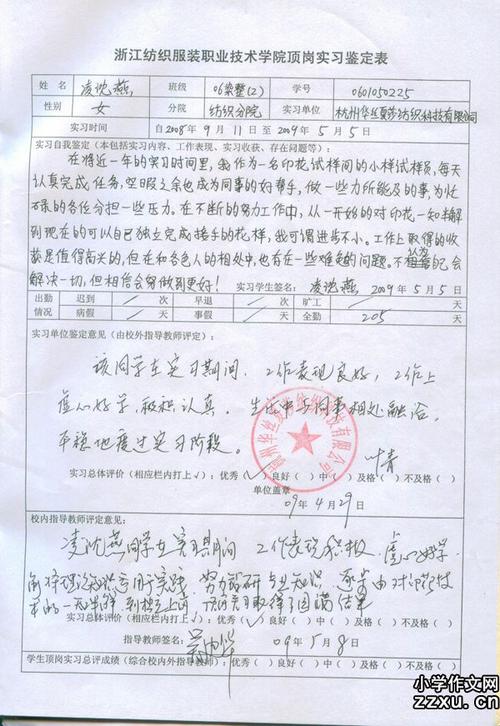 浙江纺织服装职业技术学院顶岗实习鉴定表
姓名 凌沈燕 班级 06染整(2) 学号 0601050225
性别 女 分院 纺织分院 实习单位 杭州华丝夏莎纺织科技有限公司
实习时间 自2008年9月11日至2009年5月5日
实习自我鉴定（本包括实习内容、工作表现、实习收获、存在问题等）：
在将近一年的实习时间里，我作为一名印花试样间的小样试样员，每天
认真完成任务，空暇之余也成为同事的好帮手，做一些力所能及的事，为忙
不录的各任分担一些压力。在不断的努力工作中，从一开始的对印花一知半解
到现在的可以自己独立完成接手的花样，我可谓进步不小。工作上取得的收
获是值得高兴的，但在和各色人的相处中，也存在一些难免的问题。不认为自己会
解决一切，但相信会努力做到更好！
实习学生签名：凌沈燕 2009年5月5日
出勤情况 迟到 / 次 早退 / 次 旷工 / 天
病假 / 天 事假 / 天 全勤 205 天
实习单位鉴定意见（由校外指导教师评定）：
该同学在实习期间，工作表现良好，工作上
虚心好学，积极认真。生活中与同事相处融洽，
平稳地度过实习阶段。
叶青
实习总体评价（相应栏内打上√）：优秀（√）良好（ ）中（ ）及格（ ）不及格（ ）
单位盖章
09年4月29日
杭州华丝夏莎纺织科技有限公司
校内指导教师评定意见：
凌沈燕同学在实习期间 工作表现积极，虚心好学
能将理论知识运用于实践，努力钻研专业知识，逐步由对印花技
术的一知半解到独立上岗，顶岗实习取得了圆满结果
实习总体评价（相应栏内打上√）：优秀（√）良好（ ）中（ ）及格（ ）不及格（ ）
指导教师签名：
09年5月8日
学生顶岗实习总评成绩（综合校内外指导教师）：优秀（ ）良好（ ）中（ ）及格（ ）不及格（ ）
小学作文网
zzxu.cn